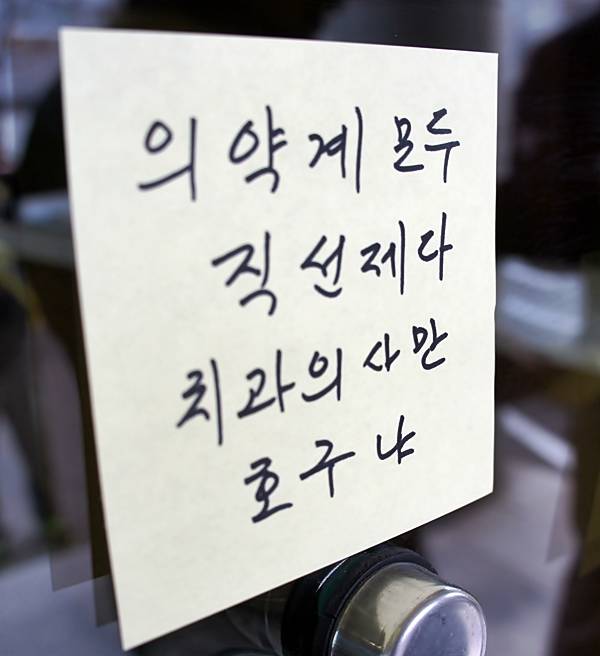 의약계 모두
직선제다
치과의사만
호구냐